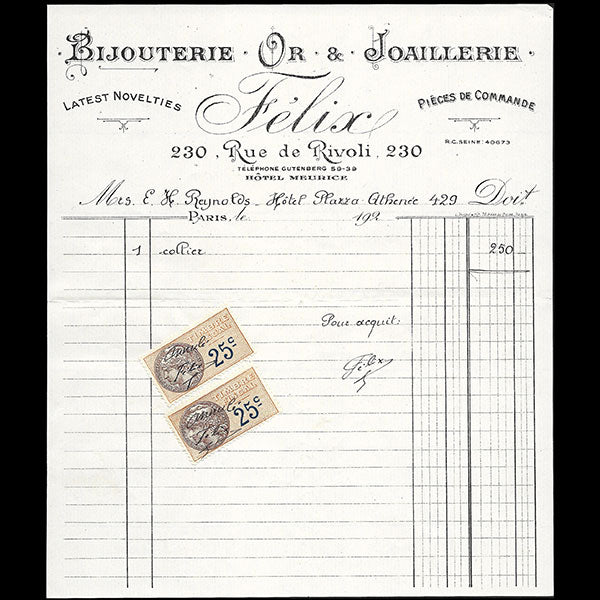 BIJOUTERIE · OR · & · JOAILLERIE ·
LATEST NOVELTIES
Félix
PIÈCES DE COMMANDE
R.C. SEINE: 40673
230, Rue de Rivoli, 230
TÉLÉPHONE GUTENBERG 59-39
HÔTEL MEURICE
Mrs. E. H. Reynolds - Hôtel Plazza-Athenée 429 Doit
PARIS, le 192
1 collier 250
Pour acquit:
Félix
TIMBRE
25c
Annulé
Félix
TIMBRE
25c
Annulé
Félix